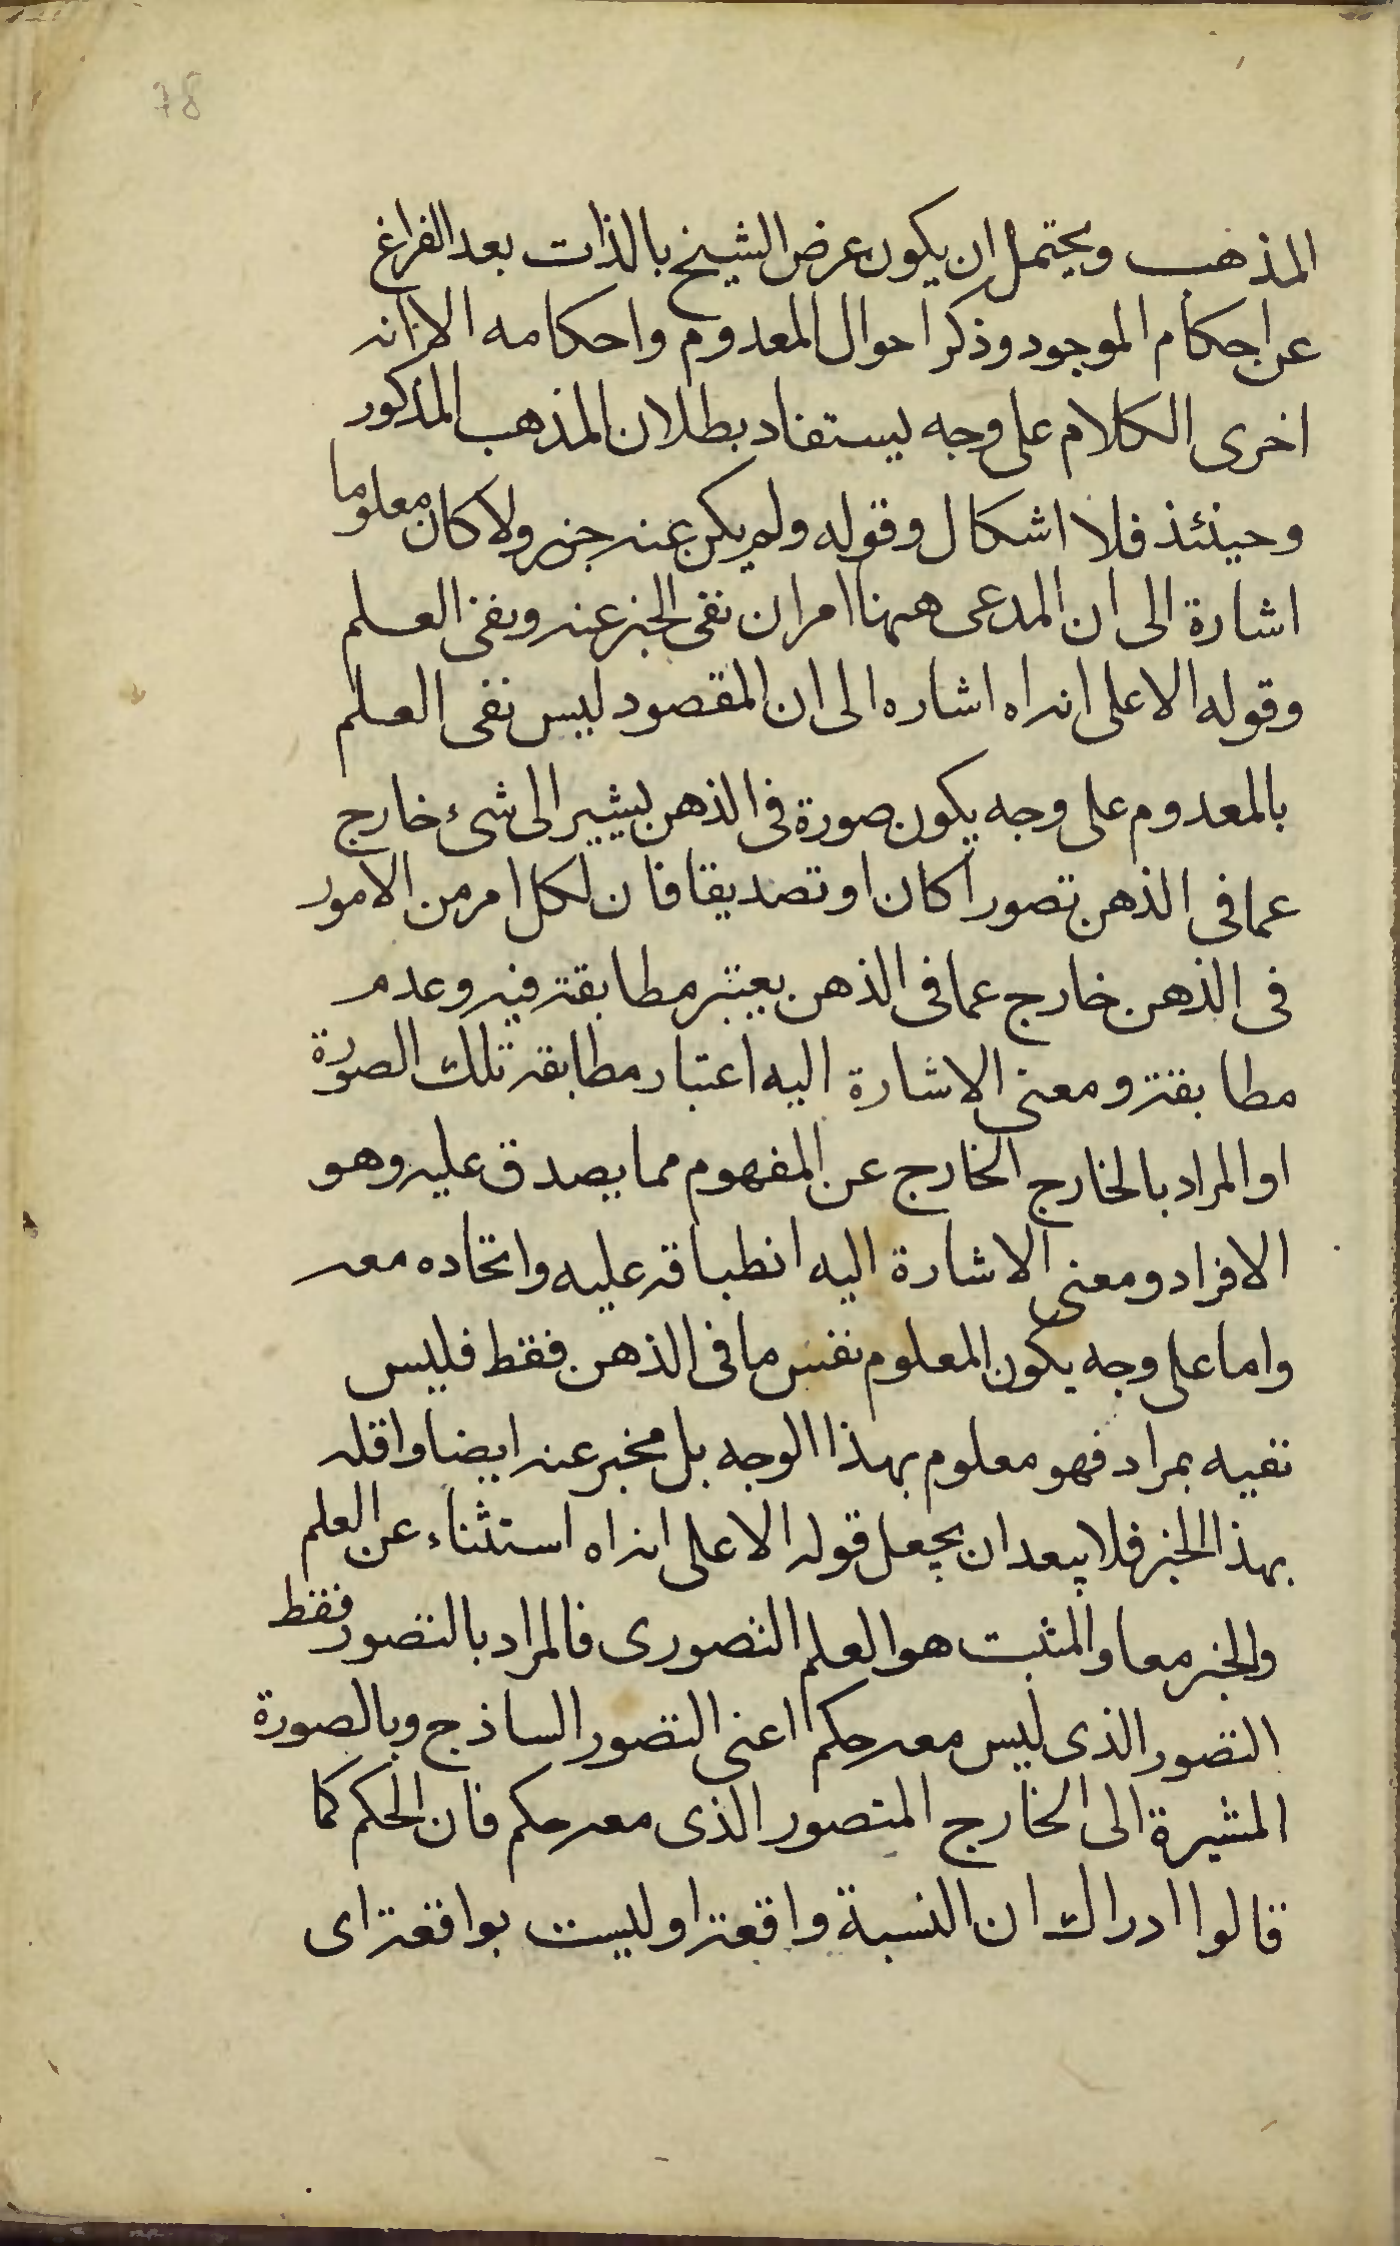 78
المذهب ويحتمل ان يكون عرض الشيخ بالذات بعد الفراغ
عن احكام الموجود وذكر احوال المعدوم واحكامه الا انه
اخرى الكلام على وجه يستفاد بطلان المذهب المذكور
وحينئذ فلا اشكال وقوله ولم يكن عنه خبر ولا كان معلوما
اشارة الى ان المدعى ههنا امران نفى الخبر عنه ونفى العلم
وقوله الا على انه اه اشاره الى ان المقصود ليس نفى العلم
بالمعدوم على وجه يكون صورة فى الذهن ليشير الى شىء خارج
عما فى الذهن تصورا كان او تصديقا فان لكل امر من الامور
فى الذهن خارج عما فى الذهن يعتبر مطابقته فيه وعدم
مطابقته ومعنى الاشارة اليه اعتبار مطابقه تلك الصورة
او المراد بالخارج الخارج عن المفهوم مما يصدق عليه وهو
الافراد ومعنى الاشارة اليه انطباقه عليه واتحاده معه
واما على وجه يكون المعلوم نفس ما فى الذهن فقط فليس
نفيه بمراد فهو معلوم بهذا الوجه بل مخبر عنه ايضا واقله
بهذا الخبر فلا يبعد ان يجعل قوله الا على انه اه استثناء عن العلم
والخبر معا والمثبت هو العلم التصورى فالمراد بالتصور فقط
التصور الذى ليس معه حكم اعنى التصور الساذج وبالصورة
المشيرة الى الخارج المتصور الذى معه حكم فان الحكم كما
قالوا ادراك ان النسبة واقعة او ليست بواقعة اى